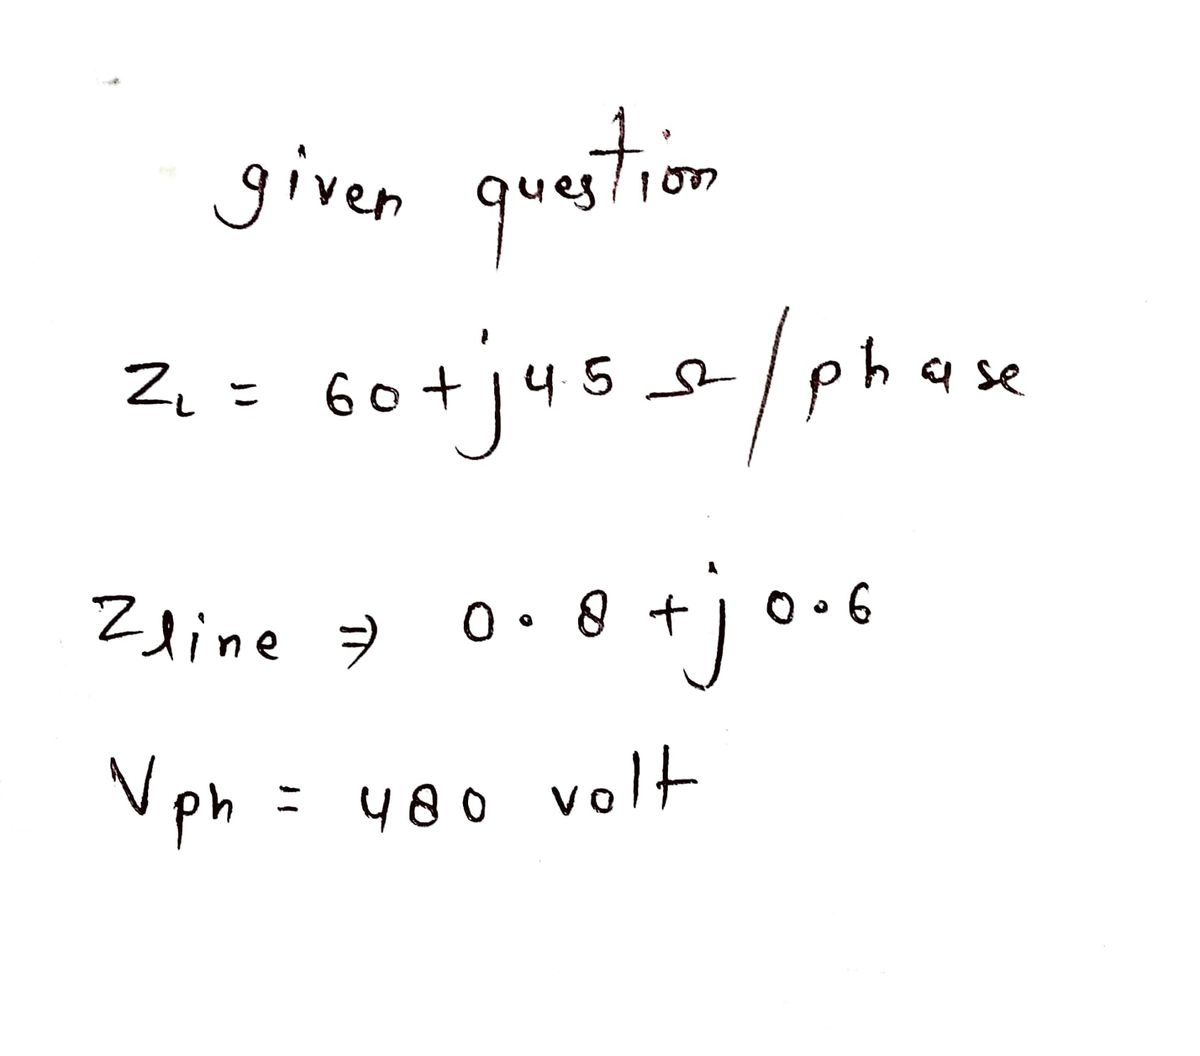 given question
Z_L = 60 + j45 Ω / phase
Zline ⇒ 0.8 + j 0.6
Vph = 480 volt